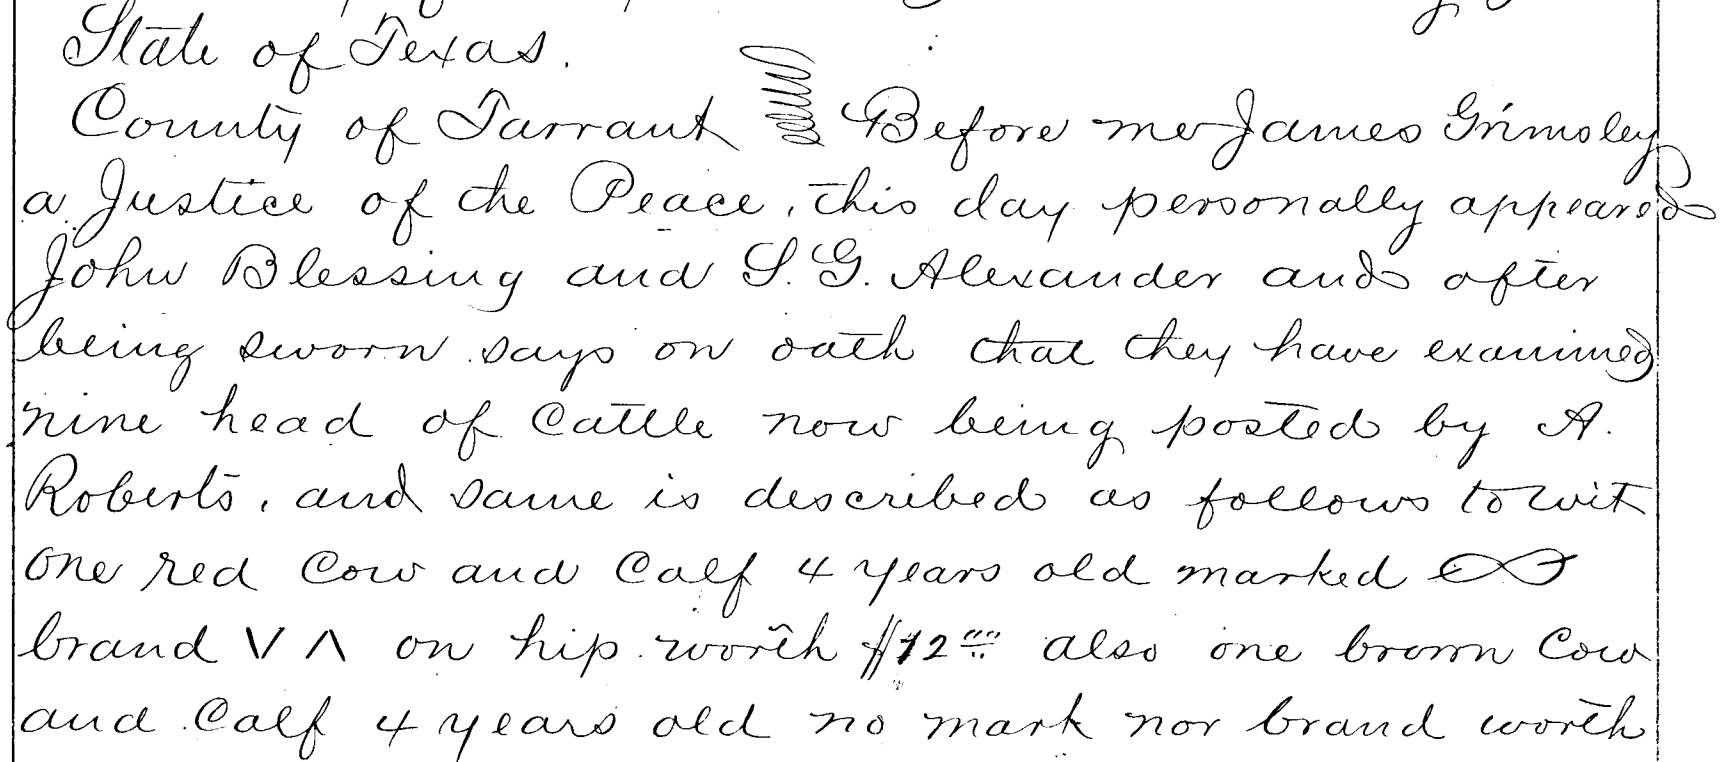 State of Texas.
County of Tarrant Before me James Grimsley
a Justice of the Peace, this day personally appeared
John Blessing and S. G. Alexander and after
being sworn says on oath that they have examined
nine head of Cattle now being posted by A.
Roberts, and same is described as follows to wit
One red Cow and Calf 4 years old marked
brand V Λ on hip worth $12.00 also one brown Cow
and Calf 4 years old no mark nor brand worth